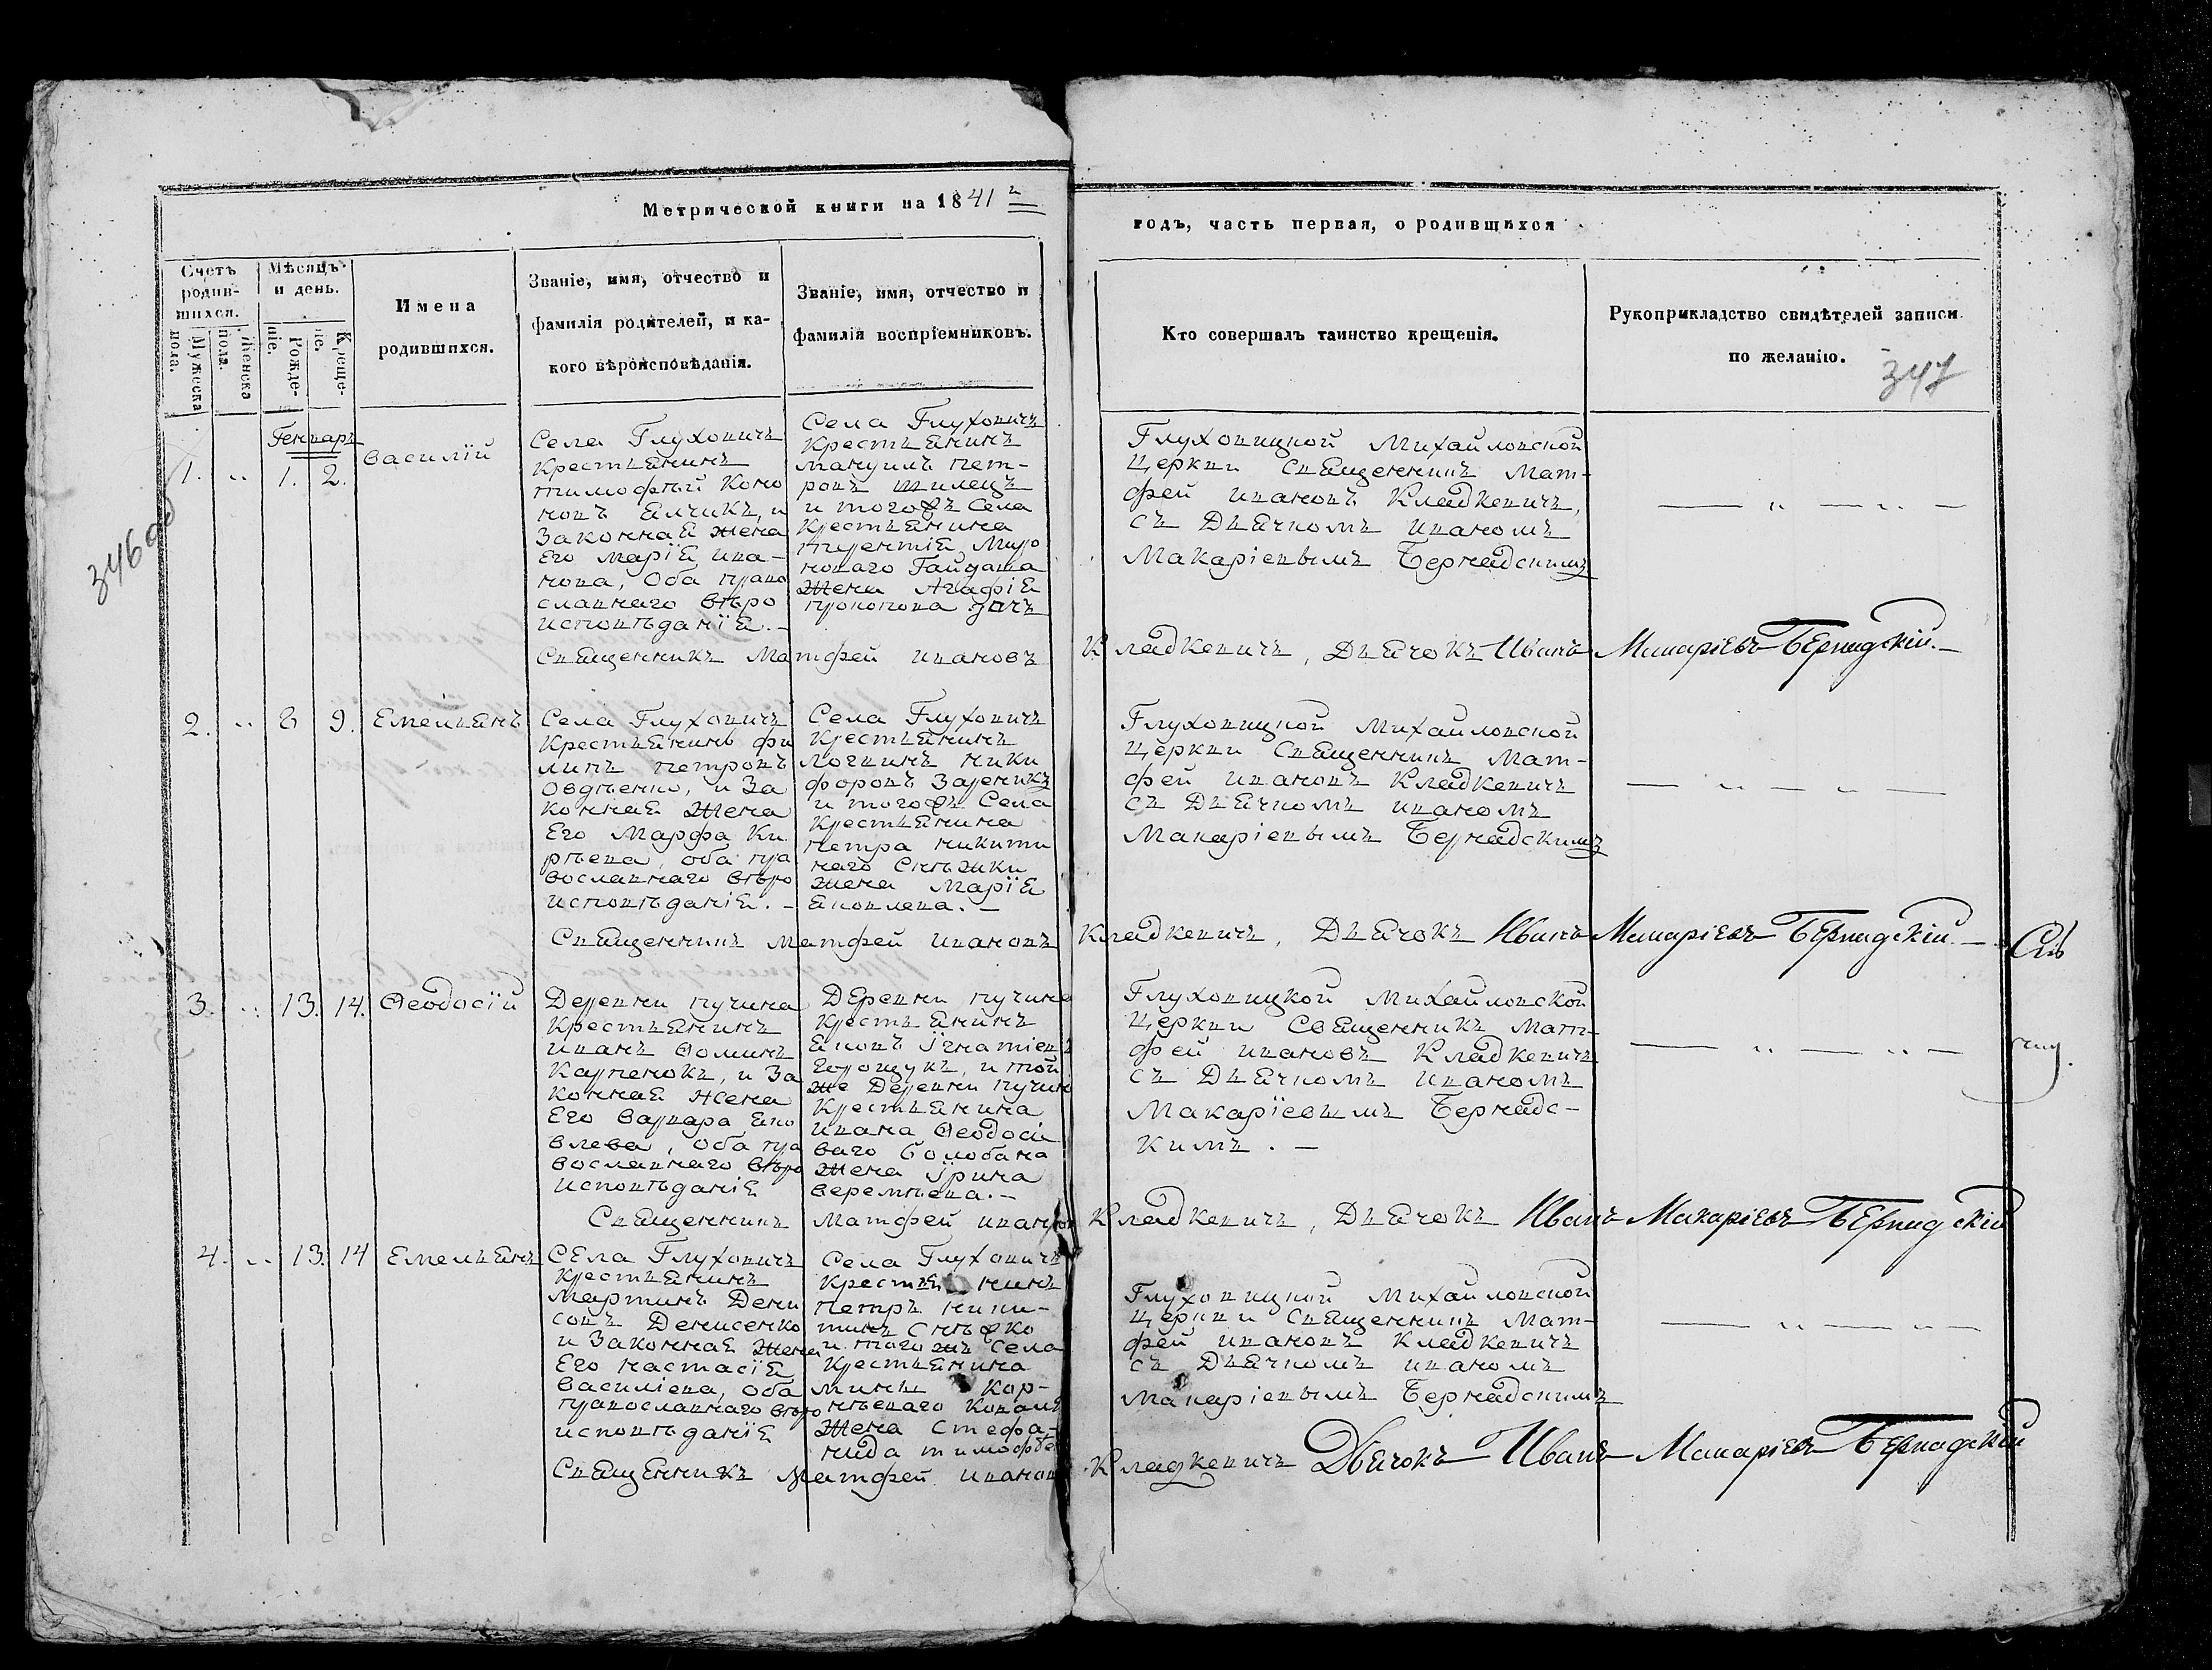 Метрической книги на 1841 г
годъ, часть первая, о родившихся
Счетъ родив-шихся.
Мужеска пола.
Женска пола.
Мѣсяцъ и день.
Рожде-ніе.
Креще-ніе.
Имена
родившихся.
Званіе, имя, отчество и
фамилія родителей, и ка-
кого вѣроисповѣданія.
Званіе, имя, отчество и
фамилія воспріемниковъ.
Кто совершалъ таинство крещенія.
Рукоприкладство свидѣтелей записи
по желанію.
347
346 об
Генварь
1. 1. 2. Василій
Села Глуховичъ
крестьянинъ
тимофтый Коно
новъ
и
законная жена
Его Марія ива-
нова, Оба право
славнаго вѣро
исповѣданія. —
Села Глуховичъ
Крестьянинъ
мануилъ пет-
ровъ шилецъ
и тогожъ Села
Крестьянина
терентія Миро
новаго Гайдаша
Жена Агафія
прокопова дочь
Глуховицкой Михайловской
Церкви Священникъ Мат-
фей ивановъ Кладкевичъ,
съ Дьячкомъ иваномъ
Макаріевымъ Бернадскимъ
Священникъ Матфей ивановъ Кладкевичъ, Дьячокъ Иванъ Макаріевъ Бернадскій. —
2. 8 9. Емельянъ
Села Глуховичъ
Крестьянинъ фи
липъ петровъ
Овдѣенко, и За
конная Жена
Его Марфа Ки
рѣева, оба пра
вославнаго вѣро
исповѣданія. —
Села Глуховичъ
Крестьянинъ
логвинъ ники
форовъ
и тогожъ Села
Крестьянина
петра никити
наго Снѣжки
жена Марія
Яковлева. —
Глуховицкой Михайловской
Церкви Священникъ Мат-
фей ивановъ Кладкевичъ
съ Дьячкомъ иваномъ
Макаріевымъ Бернадскимъ
Священникъ Матфей ивановъ Кладкевичъ, Дьячокъ Иванъ Макаріевъ Бернадскій. —
3. 13. 14. Ѳеодосій
Деревни пучина
Крестьянинъ
иванъ Ѳоминъ
Карпенокъ, и За
конная Жена
Его Варвара Яко
влева, Оба пра
вославнаго вѣро
исповѣданія
Деревни пучина
Крестьянинъ
Яковъ Ігнатіевъ
Ерощукъ, и той
же Деревни пучина
Крестьянина
ивана Ѳеодосіе
ваго Болобана
Жена Ірина
веремѣева. —
Глуховицкой Михайловской
Церкви Священникъ Мат-
фей ивановъ Кладкевичъ
съ Дьячкомъ иваномъ
Макаріевымъ Бернадс-
кимъ. —
Священникъ Матфей ивановъ Кладкевичъ, Дьячокъ Иванъ Макаріевъ Бернадскій
4. 13. 14 Емельянъ
Села Глуховичъ
Крестьянинъ
Мартинъ Дени
совъ Денисенко
и Законная Жена
Его настасія
Василіева, оба
православнаго вѣро
исповѣданія
Села Глуховичъ
Крестьянинъ
петръ ники-
тинъ Снѣжко
и тогожъ Села
Крестьянина
мины Кор-
нѣеваго Коваля
Жена Стефа-
нида тимофѣе
Глуховицкой Михайловской
Церкви Священникъ Мат-
фей ивановъ Кладкевичъ
съ Дьячкомъ иваномъ
Макаріевымъ Бернадскимъ
Священникъ Матфей ивановъ Кладкевичъ Дьячокъ Иванъ Макаріевъ Бернадскій